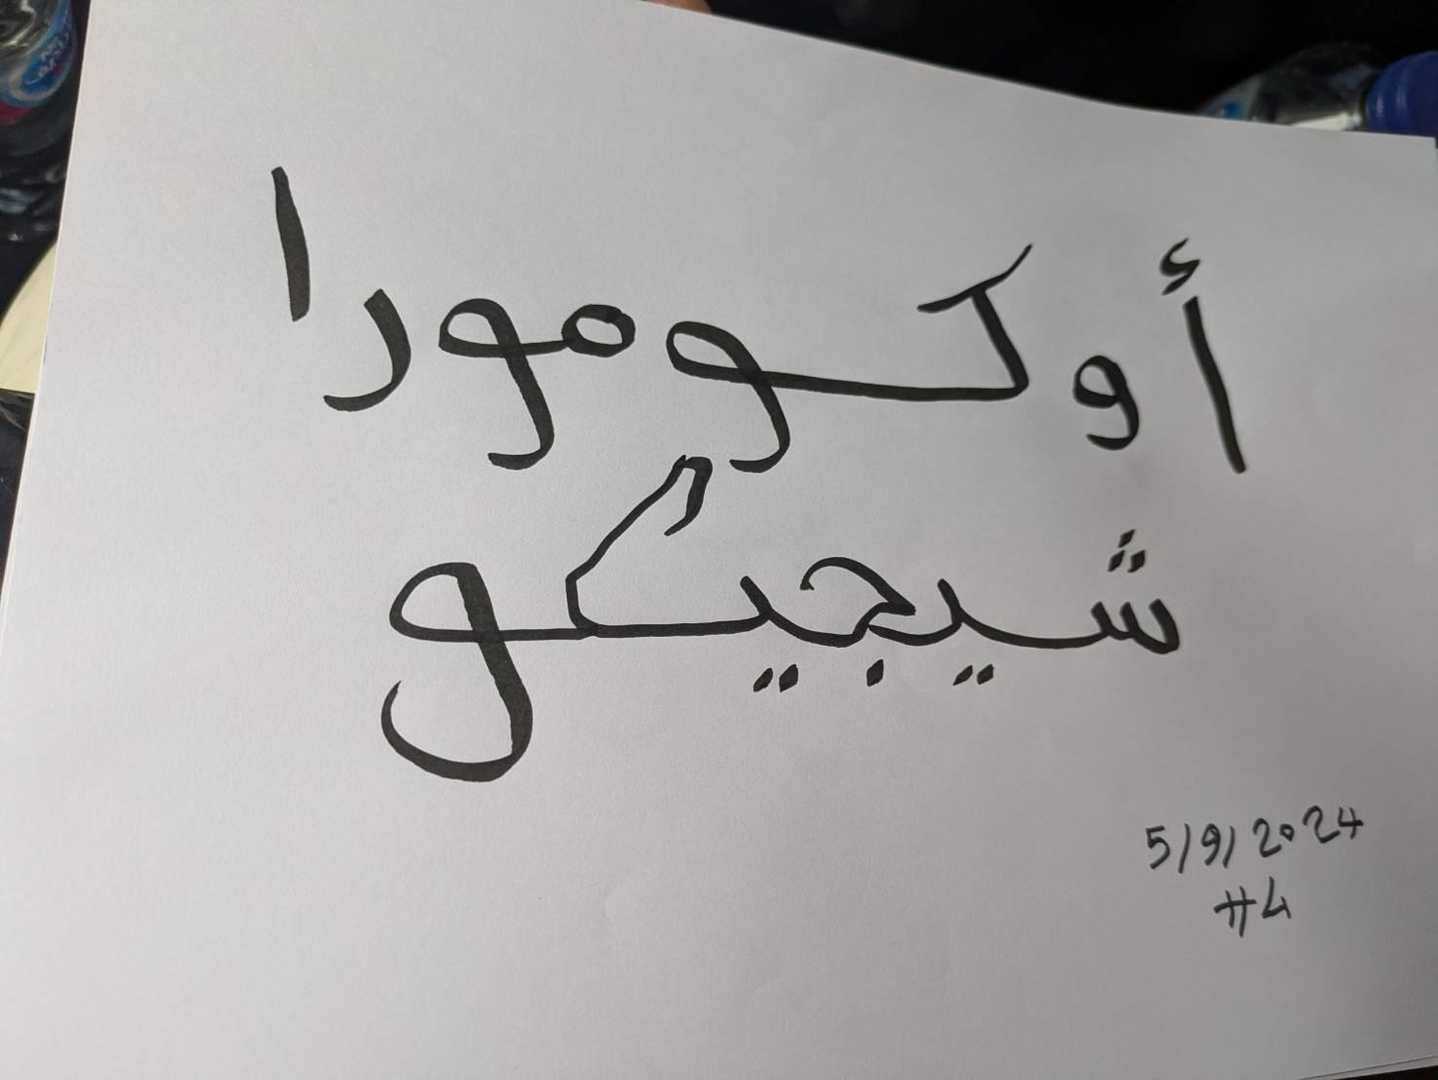 أوكومورا
شيجيكو
5/9/2024
#4